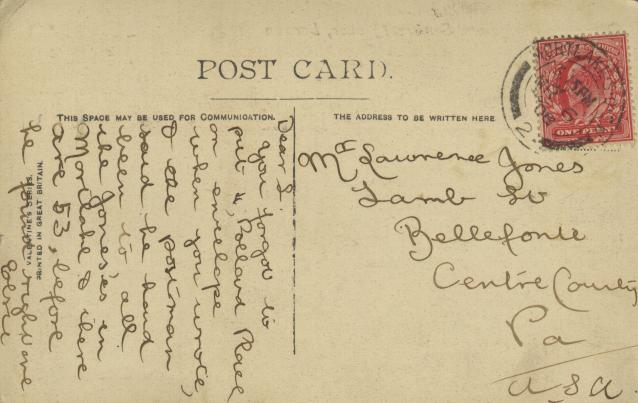 POST CARD.
THIS SPACE MAY BE USED FOR COMMUNICATION.
THE ADDRESS TO BE WRITTEN HERE
VALENTINE'S SERIES
PRINTED IN GREAT BRITAIN.
Dear L.
you forgot to
put 4, Pollard Place
on envelope
when you wrote,
& the postman
said he had
been to all
the Jones'es in
Mortlake & there
are 53, before
he found right one
Mr Lawrence Jones
Lamb St
Bellefonte
Centre County
Pa
USA.
MORTLAKE
ONE PENNY